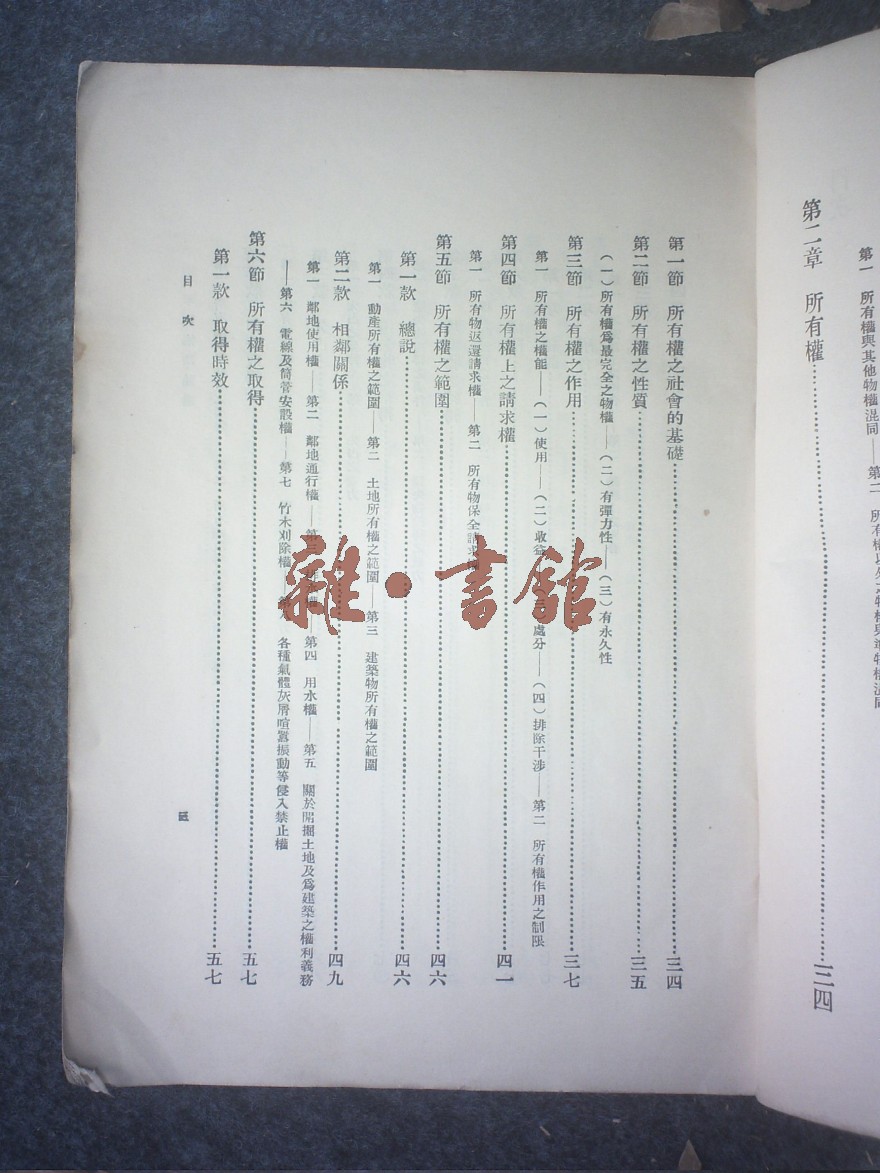 第一 所有權與其他物權混同——第二 所有權以外之物權與準物權混同
第二章 所有權……三四
第一節 所有權之社會的基礎……三四
第二節 所有權之性質……三五
(一)所有權爲最完全之物權——(二)有彈力性——(三)有永久性
第三節 所有權之作用……三七
第一 所有權之權能——(一)使用——(二)收益 處分——(四)排除干涉——第二 所有權作用之制限
第四節 所有權上之請求權……四一
第一 所有物返還請求權——第二 所有物保全請求權
第五節 所有權之範圍……四六
第一款 總說……四六
第一 動產所有權之範圍——第二 土地所有權之範圍——第三 建築物所有權之範圍
第二款 相鄰關係……四九
第一 鄰地使用權——第二 鄰地通行權——第三 排 權——第四 用水權——第五 關於開掘土地及爲建築之權利義務
——第六 電線及筒管安設權——第七 竹木刈除權——第八 各種氣體灰屑喧囂振動等侵入禁止權
第六節 所有權之取得……五七
第一款 取得時效……五七
目次
三
雜·書館